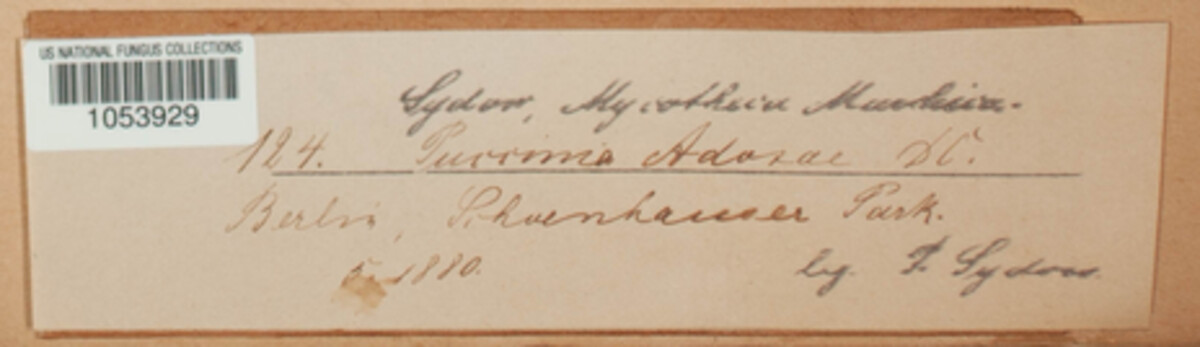 US NATIONAL FUNGUS COLLECTIONS
1053929
Sydow, Mycotheca Marchica.
124. Puccinia Adoxae DC.
Berlin, Schoenhauser Park.
5. 1880.
leg. P. Sydow.